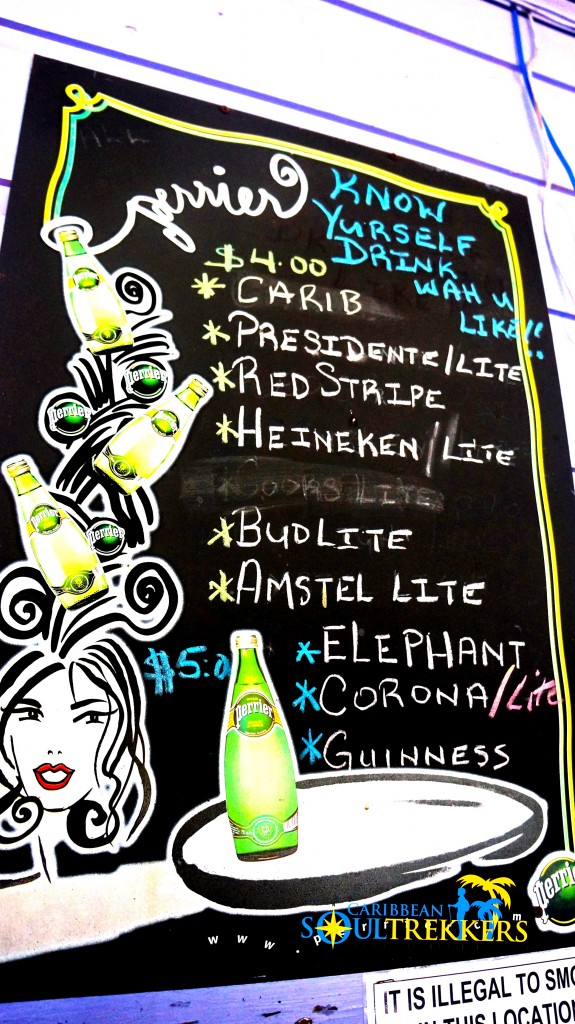 perrier
KNOW
YURSELF
DRINK
WAH U
LIKE!!
$4.00
* CARIB
* PRESIDENTE/LITE
* RED STRIPE
* HEINEKEN/LITE
* COORS LITE
* BUDLITE
* AMSTEL LITE
$5.0
* ELEPHANT
* CORONA/Lite
* GUINNESS
perrier
perrier
perrier
perrier
perrier
CARIBBEAN
SOULTREKKERS
www.
IT IS ILLEGAL TO SMO
IN THIS LOCATION